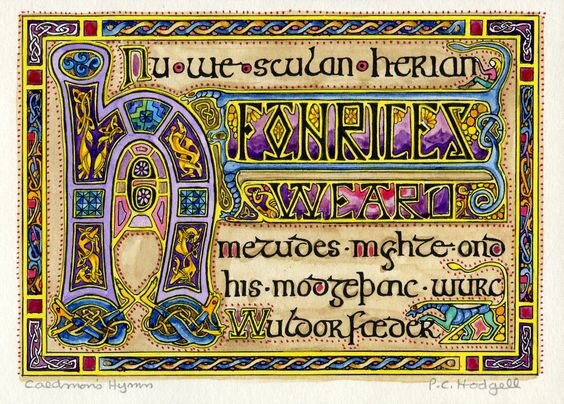 nu·we·sculan·herian
heFONRICES
WEARD
metudes·mghte·ond
his·modgeþanc·wurc
Wuldorfæder
Caedmon's Hymn
P.C. Hodgell